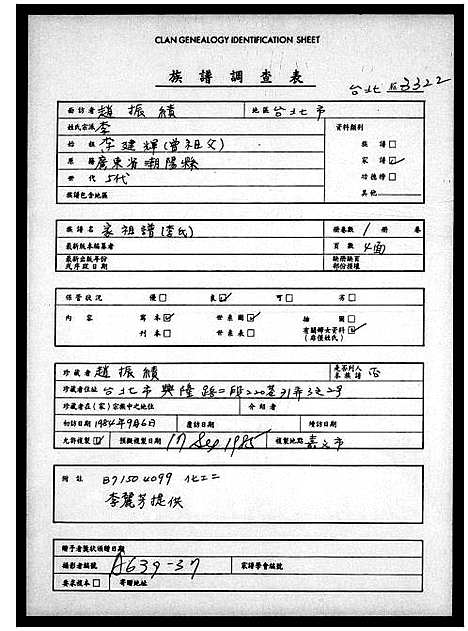 CLAN GENEALOGY IDENTIFICATION SHEET
族譜調查表
台北 3322
面訪者 趙振績 地區 台北市
姓氏宗派 李 資料類列
始祖 李建輝(曾祖父) 族譜□
原籍 廣東省潮陽縣 家譜☑
世代 5代 功德榜□
族譜包含地區 其他
族譜名 家祖譜(李氏) 冊卷數 1 冊 卷
最新版本編纂者 頁數 4面
最新出版年份或序跋日期 缺冊缺頁部份損壞
保管狀況 優□ 良☑ 可□ 劣□
內容 寫本☑ 世系圖☑ 插圖□
刊本□ 世系表□ 有關婦女資料☑(原僅姓氏)
珍藏者 趙振績 是否列入本族譜 否
珍藏者住址 台北市興隆路二段220巷31弄3之2号
珍藏者在(家)宗族中之地位 介紹者
初訪日期 1984年9月6日 應訪日期 續訪日期
允許複製☑ 預擬複製日期 17 Sep 1985 複製地點 嘉义市
附註 B71504099 化工二
李麗芳提供
贈予者獎狀頒贈日期
攝影者編號 A639-37 家譜學會編號
要求複本□ 寄贈地址